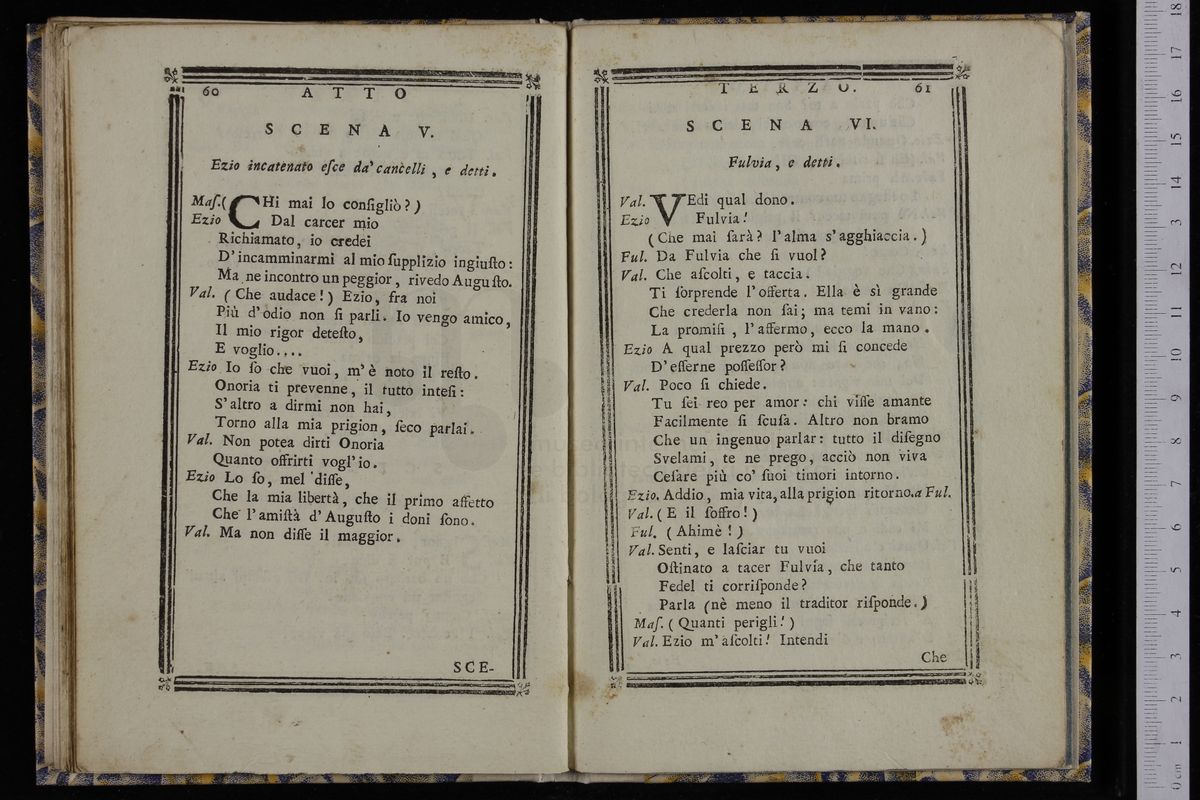 60 ATTO
SCENA V.
Ezio incatenato eſce da' cancelli , e detti.
Maſ. ( CHi mai lo conſigliò? )
Ezio Dal carcer mio
Richiamato, io credei
D'incamminarmi al mio ſupplizio ingiuſto:
Ma ne incontro un peggior, rivedo Auguſto.
Val. ( Che audace! ) Ezio, fra noi
Più d'odio non ſi parli. Io vengo amico,
Il mio rigor deteſto,
E voglio....
Ezio Io ſo che vuoi, m'è noto il reſto.
Onoria ti prevenne, il tutto inteſi:
S'altro a dirmi non hai,
Torno alla mia prigion, ſeco parlai.
Val. Non potea dirti Onoria
Quanto offrirti vogl'io.
Ezio Lo ſo, mel diſſe,
Che la mia libertà, che il primo affetto
Che l'amiſtà d'Auguſto i doni ſono.
Val. Ma non diſſe il maggior.
SCE-
TERZO. 61
SCENA VI.
Fulvia, e detti.
Val. VEdi qual dono.
Ezio Fulvia!
( Che mai ſarà? l'alma s'agghiaccia. )
Ful. Da Fulvia che ſi vuol?
Val. Che aſcolti, e taccia.
Ti ſorprende l'offerta. Ella è sì grande
Che crederla non ſai; ma temi in vano:
La promiſi , l'affermo, ecco la mano.
Ezio A qual prezzo però mi ſi concede
D'eſſerne poſſeſſor?
Val. Poco ſi chiede.
Tu ſei reo per amor: chi viſſe amante
Facilmente ſi ſcuſa. Altro non bramo
Che un ingenuo parlar: tutto il diſegno
Svelami, te ne prego, acciò non viva
Ceſare più co' ſuoi timori intorno.
Ezio. Addio, mia vita, alla prigion ritorno. a Ful.
Val. ( E il ſoffro! )
Ful. ( Ahimè! )
Val. Senti, e laſciar tu vuoi
Oſtinato a tacer Fulvia, che tanto
Fedel ti corriſponde?
Parla (nè meno il traditor riſponde.)
Maſ. ( Quanti perigli! )
Val. Ezio m'aſcolti! Intendi
Che